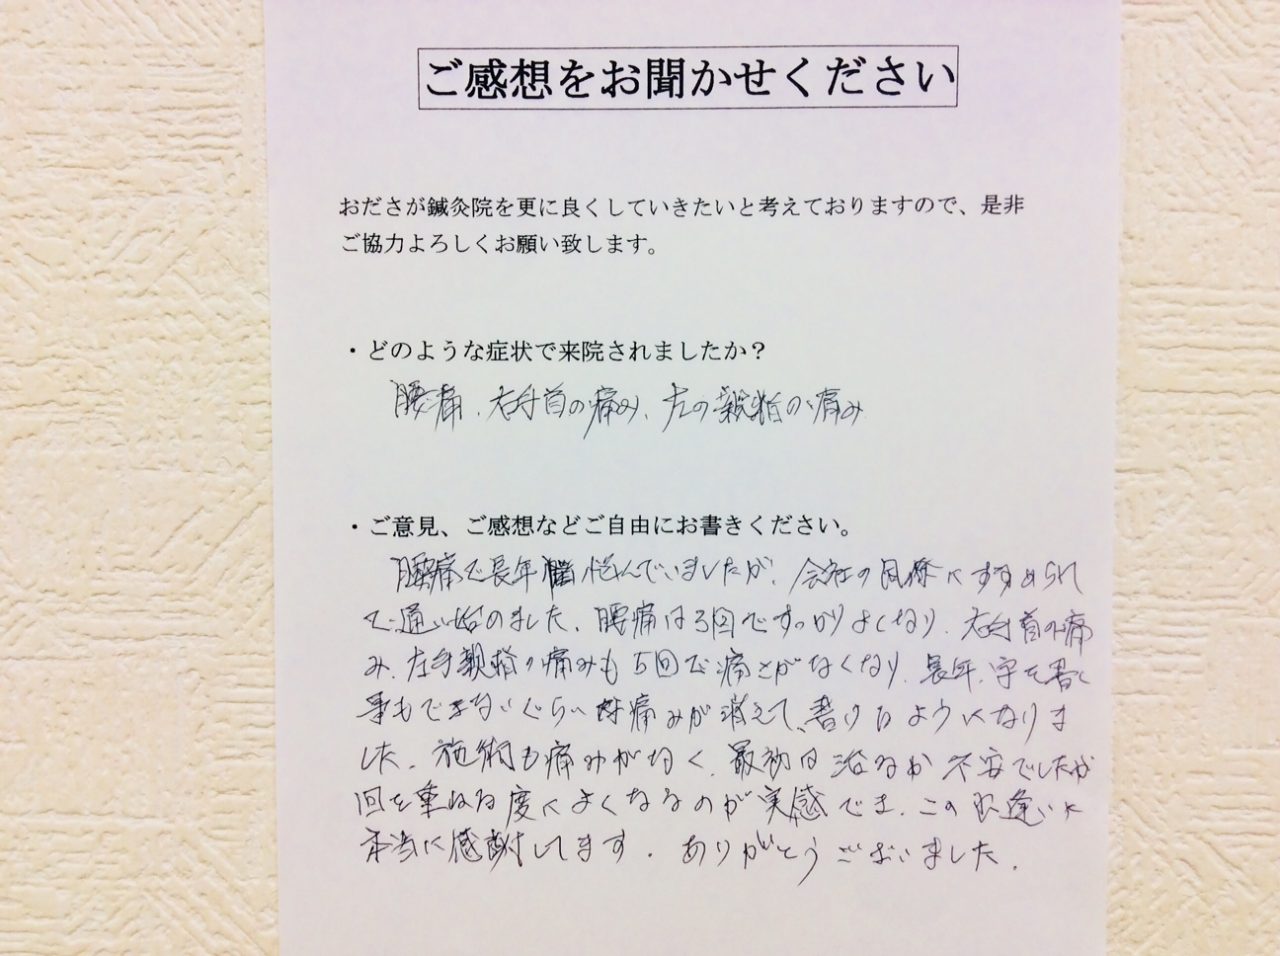 ご感想をお聞かせください
おださが鍼灸院を更に良くしていきたいと考えておりますので、是非
ご協力よろしくお願い致します。
・どのような症状で来院されましたか？
腰痛、右手首の痛み、左の親指の痛み
・ご意見、ご感想などご自由にお書きください。
腰痛で長年悩んでいましたが、会社の同僚にすすめられ
て通い始めました。腰痛は3回ですっかりよくなり、右手首の痛
み、左手親指の痛みも5回で痛さがなくなり、長年、字を書く
事もできないぐらい痛みが消えて、書けるようになりま
した。施術も痛みがなく、最初は治るか不安でしたが
回を重ねる度によくなるのが実感でき、この出逢いに
本当に感謝してます。ありがとうございました。